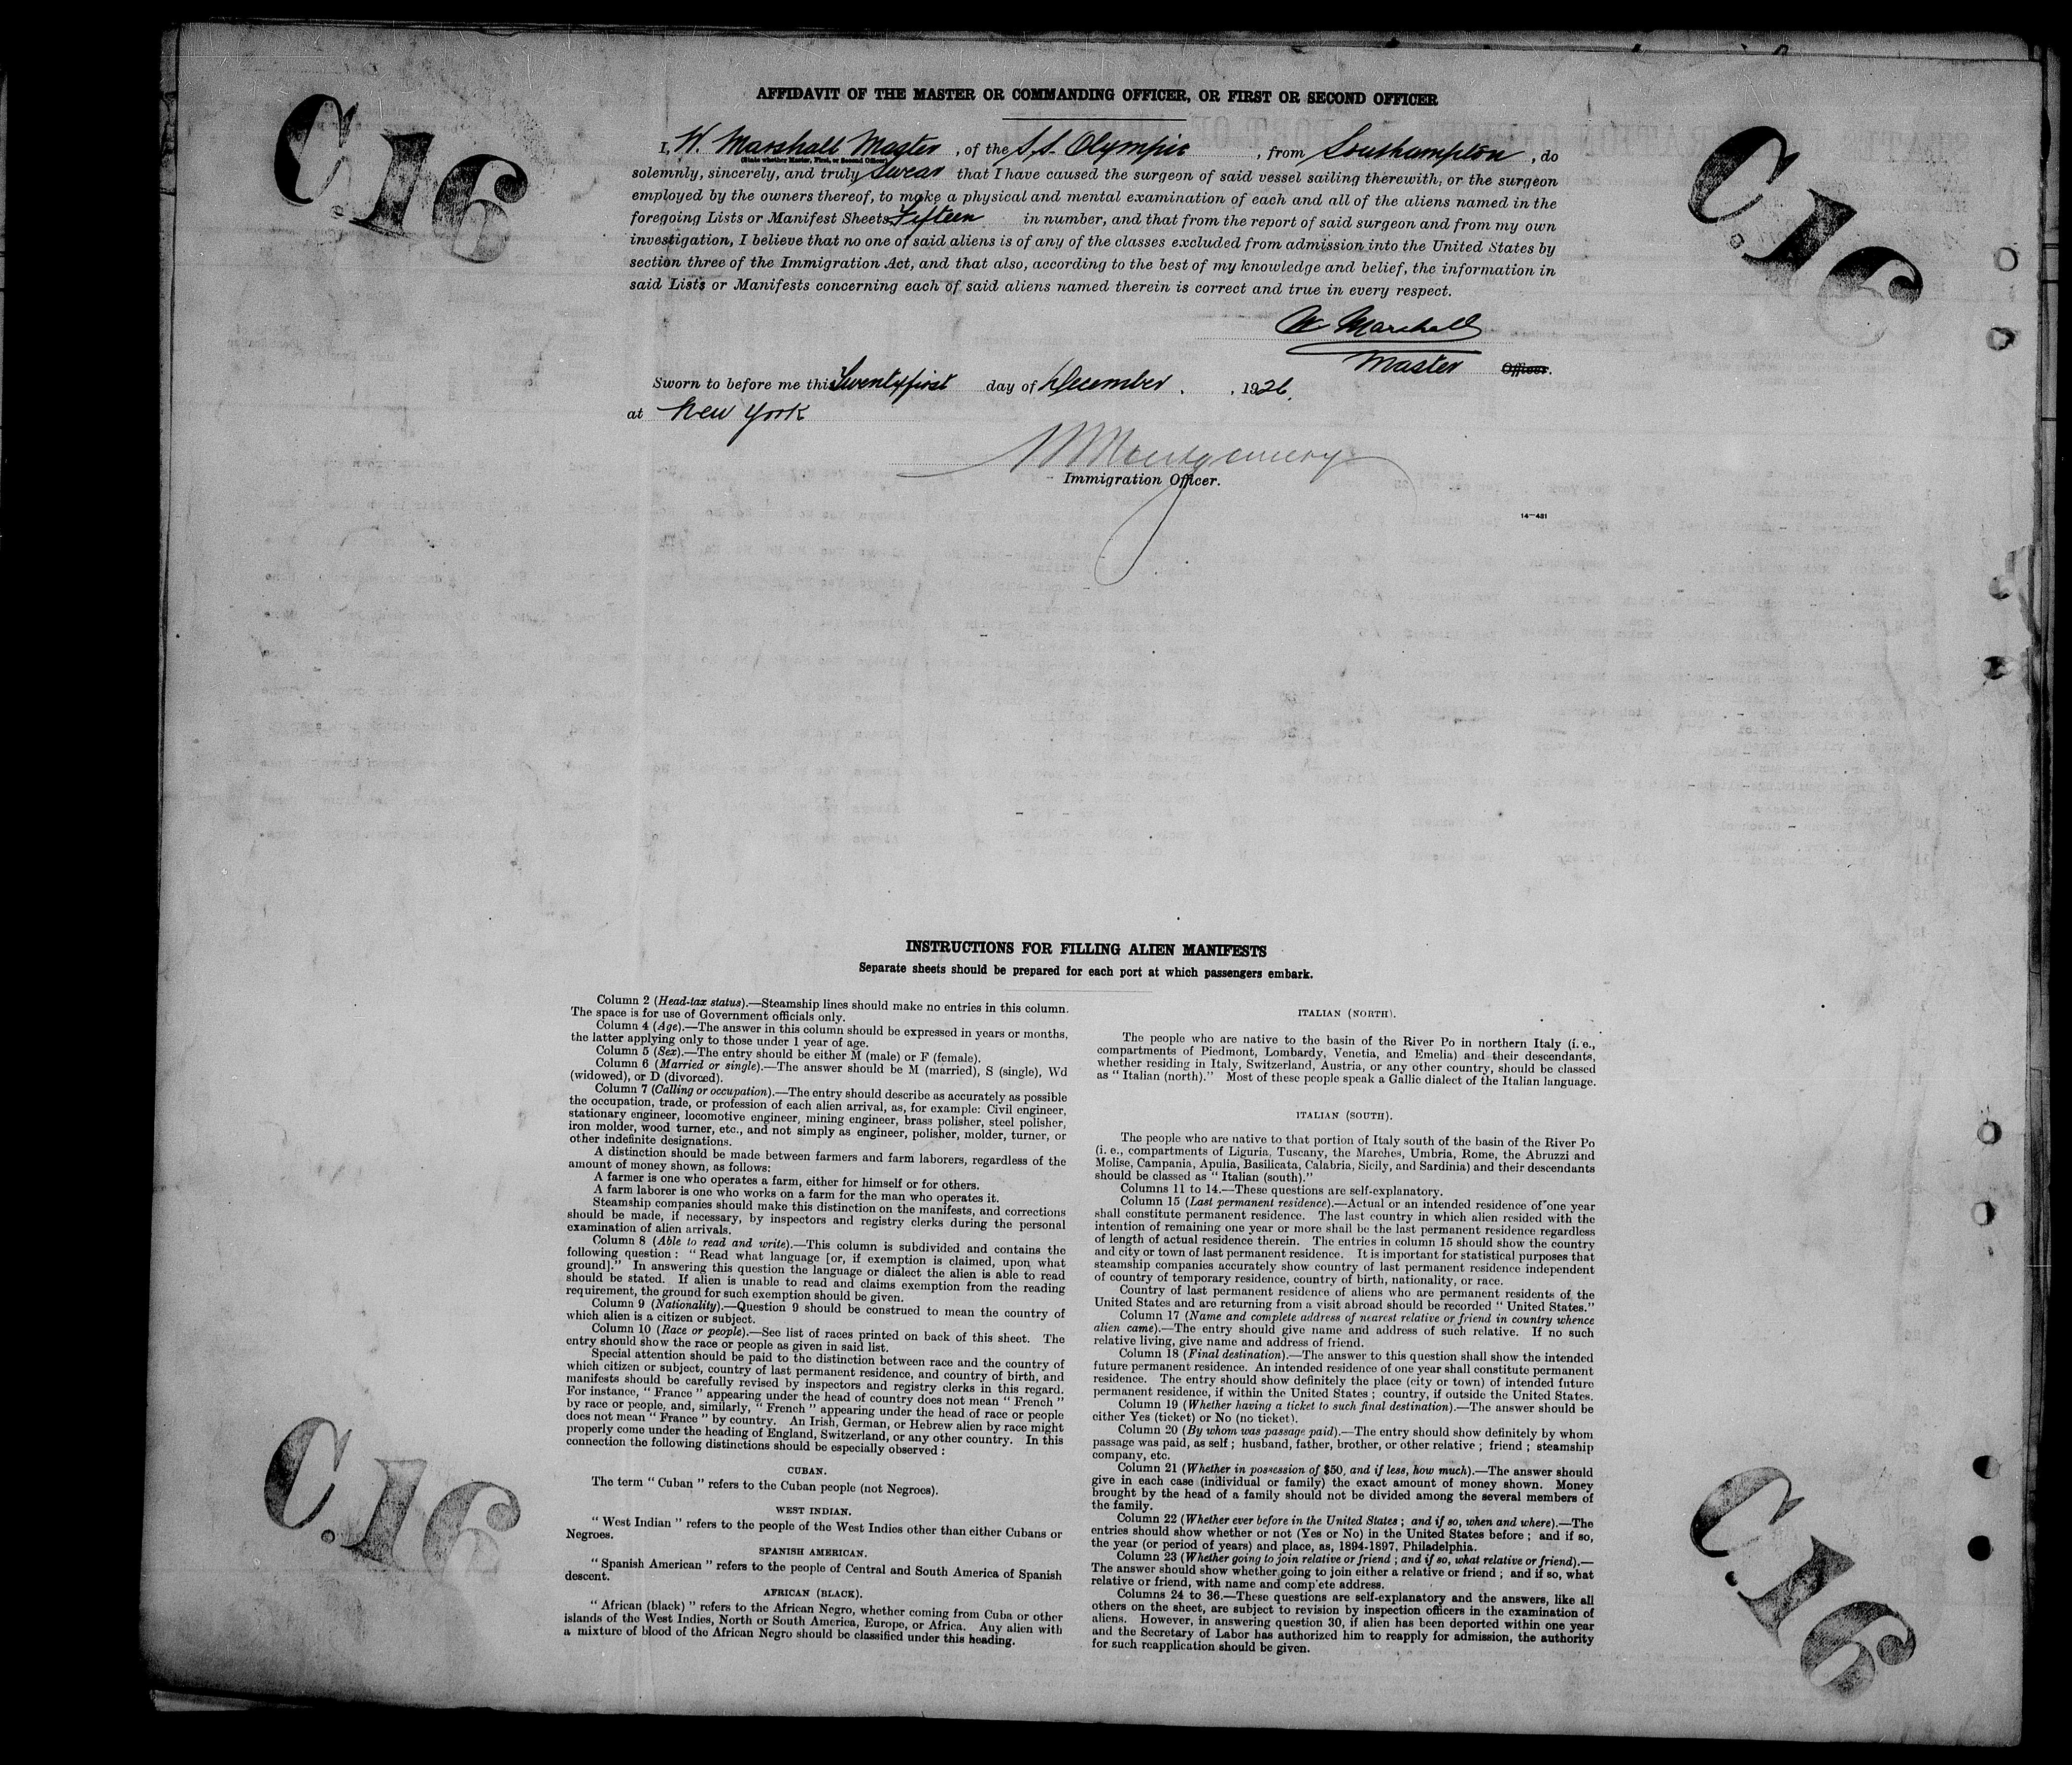 C.16
C.16
AFFIDAVIT OF THE MASTER OR COMMANDING OFFICER, OR FIRST OR SECOND OFFICER
I, W. Marshall Master, of the S.S. Olympic, from Southampton, do
(State whether Master, First, or Second Officer)
solemnly, sincerely, and truly swear that I have caused the surgeon of said vessel sailing therewith, or the surgeon
employed by the owners thereof, to make a physical and mental examination of each and all of the aliens named in the
foregoing Lists or Manifest Sheets, Fifteen in number, and that from the report of said surgeon and from my own
investigation, I believe that no one of said aliens is of any of the classes excluded from admission into the United States by
section three of the Immigration Act, and that also, according to the best of my knowledge and belief, the information in
said Lists or Manifests concerning each of said aliens named therein is correct and true in every respect.
W Marshall
Master Officer.
Sworn to before me this Twenty first day of December, 1926.
at New York
Montgomery
Immigration Officer.
14—431
INSTRUCTIONS FOR FILLING ALIEN MANIFESTS
Separate sheets should be prepared for each port at which passengers embark.
Column 2 (Head-tax status).—Steamship lines should make no entries in this column.
The space is for use of Government officials only.
Column 4 (Age).—The answer in this column should be expressed in years or months,
the latter applying only to those under 1 year of age.
Column 5 (Sex).—The entry should be either M (male) or F (female).
Column 6 (Married or single).—The answer should be M (married), S (single), Wd
(widowed), or D (divorced).
Column 7 (Calling or occupation).—The entry should describe as accurately as possible
the occupation, trade, or profession of each alien arrival, as, for example: Civil engineer,
stationary engineer, locomotive engineer, mining engineer, brass polisher, steel polisher,
iron molder, wood turner, etc., and not simply as engineer, polisher, molder, turner, or
other indefinite designations.
A distinction should be made between farmers and farm laborers, regardless of the
amount of money shown, as follows:
A farmer is one who operates a farm, either for himself or for others.
A farm laborer is one who works on a farm for the man who operates it.
Steamship companies should make this distinction on the manifests, and corrections
should be made, if necessary, by inspectors and registry clerks during the personal
examination of alien arrivals.
Column 8 (Able to read and write).—This column is subdivided and contains the
following question: "Read what language [or, if exemption is claimed, upon what
ground]." In answering this question the language or dialect the alien is able to read
should be stated. If alien is unable to read and claims exemption from the reading
requirement, the ground for such exemption should be given.
Column 9 (Nationality).—Question 9 should be construed to mean the country of
which alien is a citizen or subject.
Column 10 (Race or people).—See list of races printed on back of this sheet. The
entry should show the race or people as given in said list.
Special attention should be paid to the distinction between race and the country of
which citizen or subject, country of last permanent residence, and country of birth, and
manifests should be carefully revised by inspectors and registry clerks in this regard.
For instance, "France" appearing under the head of country does not mean "French"
by race or people, and, similarly, "French" appearing under the head of race or people
does not mean "France" by country. An Irish, German, or Hebrew alien by race might
properly come under the heading of England, Switzerland, or any other country. In this
connection the following distinctions should be especially observed:
CUBAN.
The term "Cuban" refers to the Cuban people (not Negroes).
WEST INDIAN.
"West Indian" refers to the people of the West Indies other than either Cubans or
Negroes.
SPANISH AMERICAN.
"Spanish American" refers to the people of Central and South America of Spanish
descent.
AFRICAN (BLACK).
"African (black)" refers to the African Negro, whether coming from Cuba or other
islands of the West Indies, North or South America, Europe, or Africa. Any alien with
a mixture of blood of the African Negro should be classified under this heading.
ITALIAN (NORTH).
The people who are native to the basin of the River Po in northern Italy (i. e.,
compartments of Piedmont, Lombardy, Venetia, and Emelia) and their descendants,
whether residing in Italy, Switzerland, Austria, or any other country, should be classed
as "Italian (north)." Most of these people speak a Gallic dialect of the Italian language.
ITALIAN (SOUTH).
The people who are native to that portion of Italy south of the basin of the River Po
(i. e., compartments of Liguria, Tuscany, the Marches, Umbria, Rome, the Abruzzi and
Molise, Campania, Apulia, Basilicata, Calabria, Sicily, and Sardinia) and their descendants
should be classed as "Italian (south)."
Columns 11 to 14.—These questions are self-explanatory.
Column 15 (Last permanent residence).—Actual or an intended residence of one year
shall constitute permanent residence. The last country in which alien resided with the
intention of remaining one year or more shall be the last permanent residence regardless
of length of actual residence therein. The entries in column 15 should show the country
and city or town of last permanent residence. It is important for statistical purposes that
steamship companies accurately show country of last permanent residence independent
of country of temporary residence, country of birth, nationality, or race.
Country of last permanent residence of aliens who are permanent residents of the
United States and are returning from a visit abroad should be recorded "United States."
Column 17 (Name and complete address of nearest relative or friend in country whence
alien came).—The entry should give name and address of such relative. If no such
relative living, give name and address of friend.
Column 18 (Final destination).—The answer to this question shall show the intended
future permanent residence. An intended residence of one year shall constitute permanent
residence. The entry should show definitely the place (city or town) of intended future
permanent residence, if within the United States; country, if outside the United States.
Column 19 (Whether having a ticket to such final destination).—The answer should be
either Yes (ticket) or No (no ticket).
Column 20 (By whom was passage paid).—The entry should show definitely by whom
passage was paid, as self; husband, father, brother, or other relative; friend; steamship
company, etc.
Column 21 (Whether in possession of $50, and if less, how much).—The answer should
give in each case (individual or family) the exact amount of money shown. Money
brought by the head of a family should not be divided among the several members of
the family.
Column 22 (Whether ever before in the United States; and if so, when and where).—The
entries should show whether or not (Yes or No) in the United States before; and if so,
the year (or period of years) and place, as, 1894-1897, Philadelphia.
Column 23 (Whether going to join relative or friend; and if so, what relative or friend).—
The answer should show whether going to join either a relative or friend; and if so, what
relative or friend, with name and complete address.
Columns 24 to 36.—These questions are self-explanatory and the answers, like all
others on the sheet, are subject to revision by inspection officers in the examination of
aliens. However, in answering question 30, if alien has been deported within one year
and the Secretary of Labor has authorized him to reapply for admission, the authority
for such reapplication should be given.
C.16
C.16